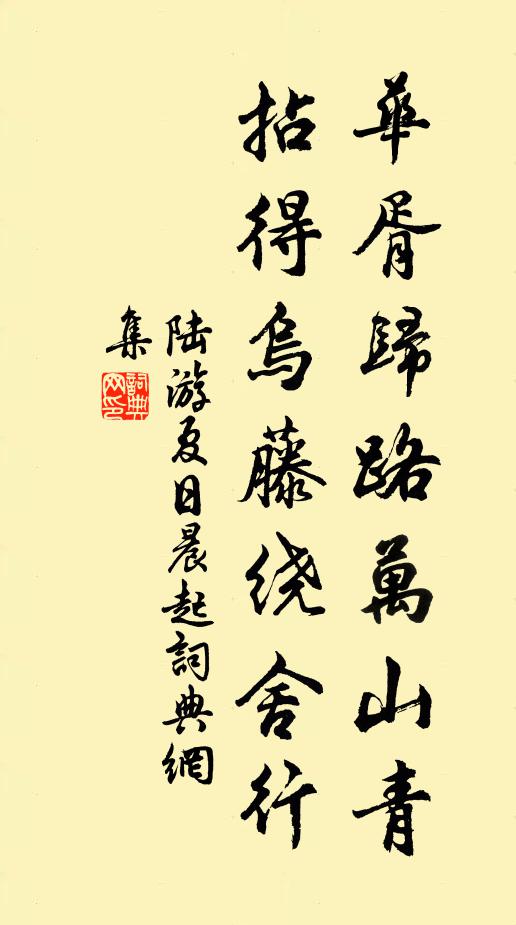 華胥歸路萬山青
拈得烏藤繞舍行
陸游夏日晨起詞典網
集
詞典網印